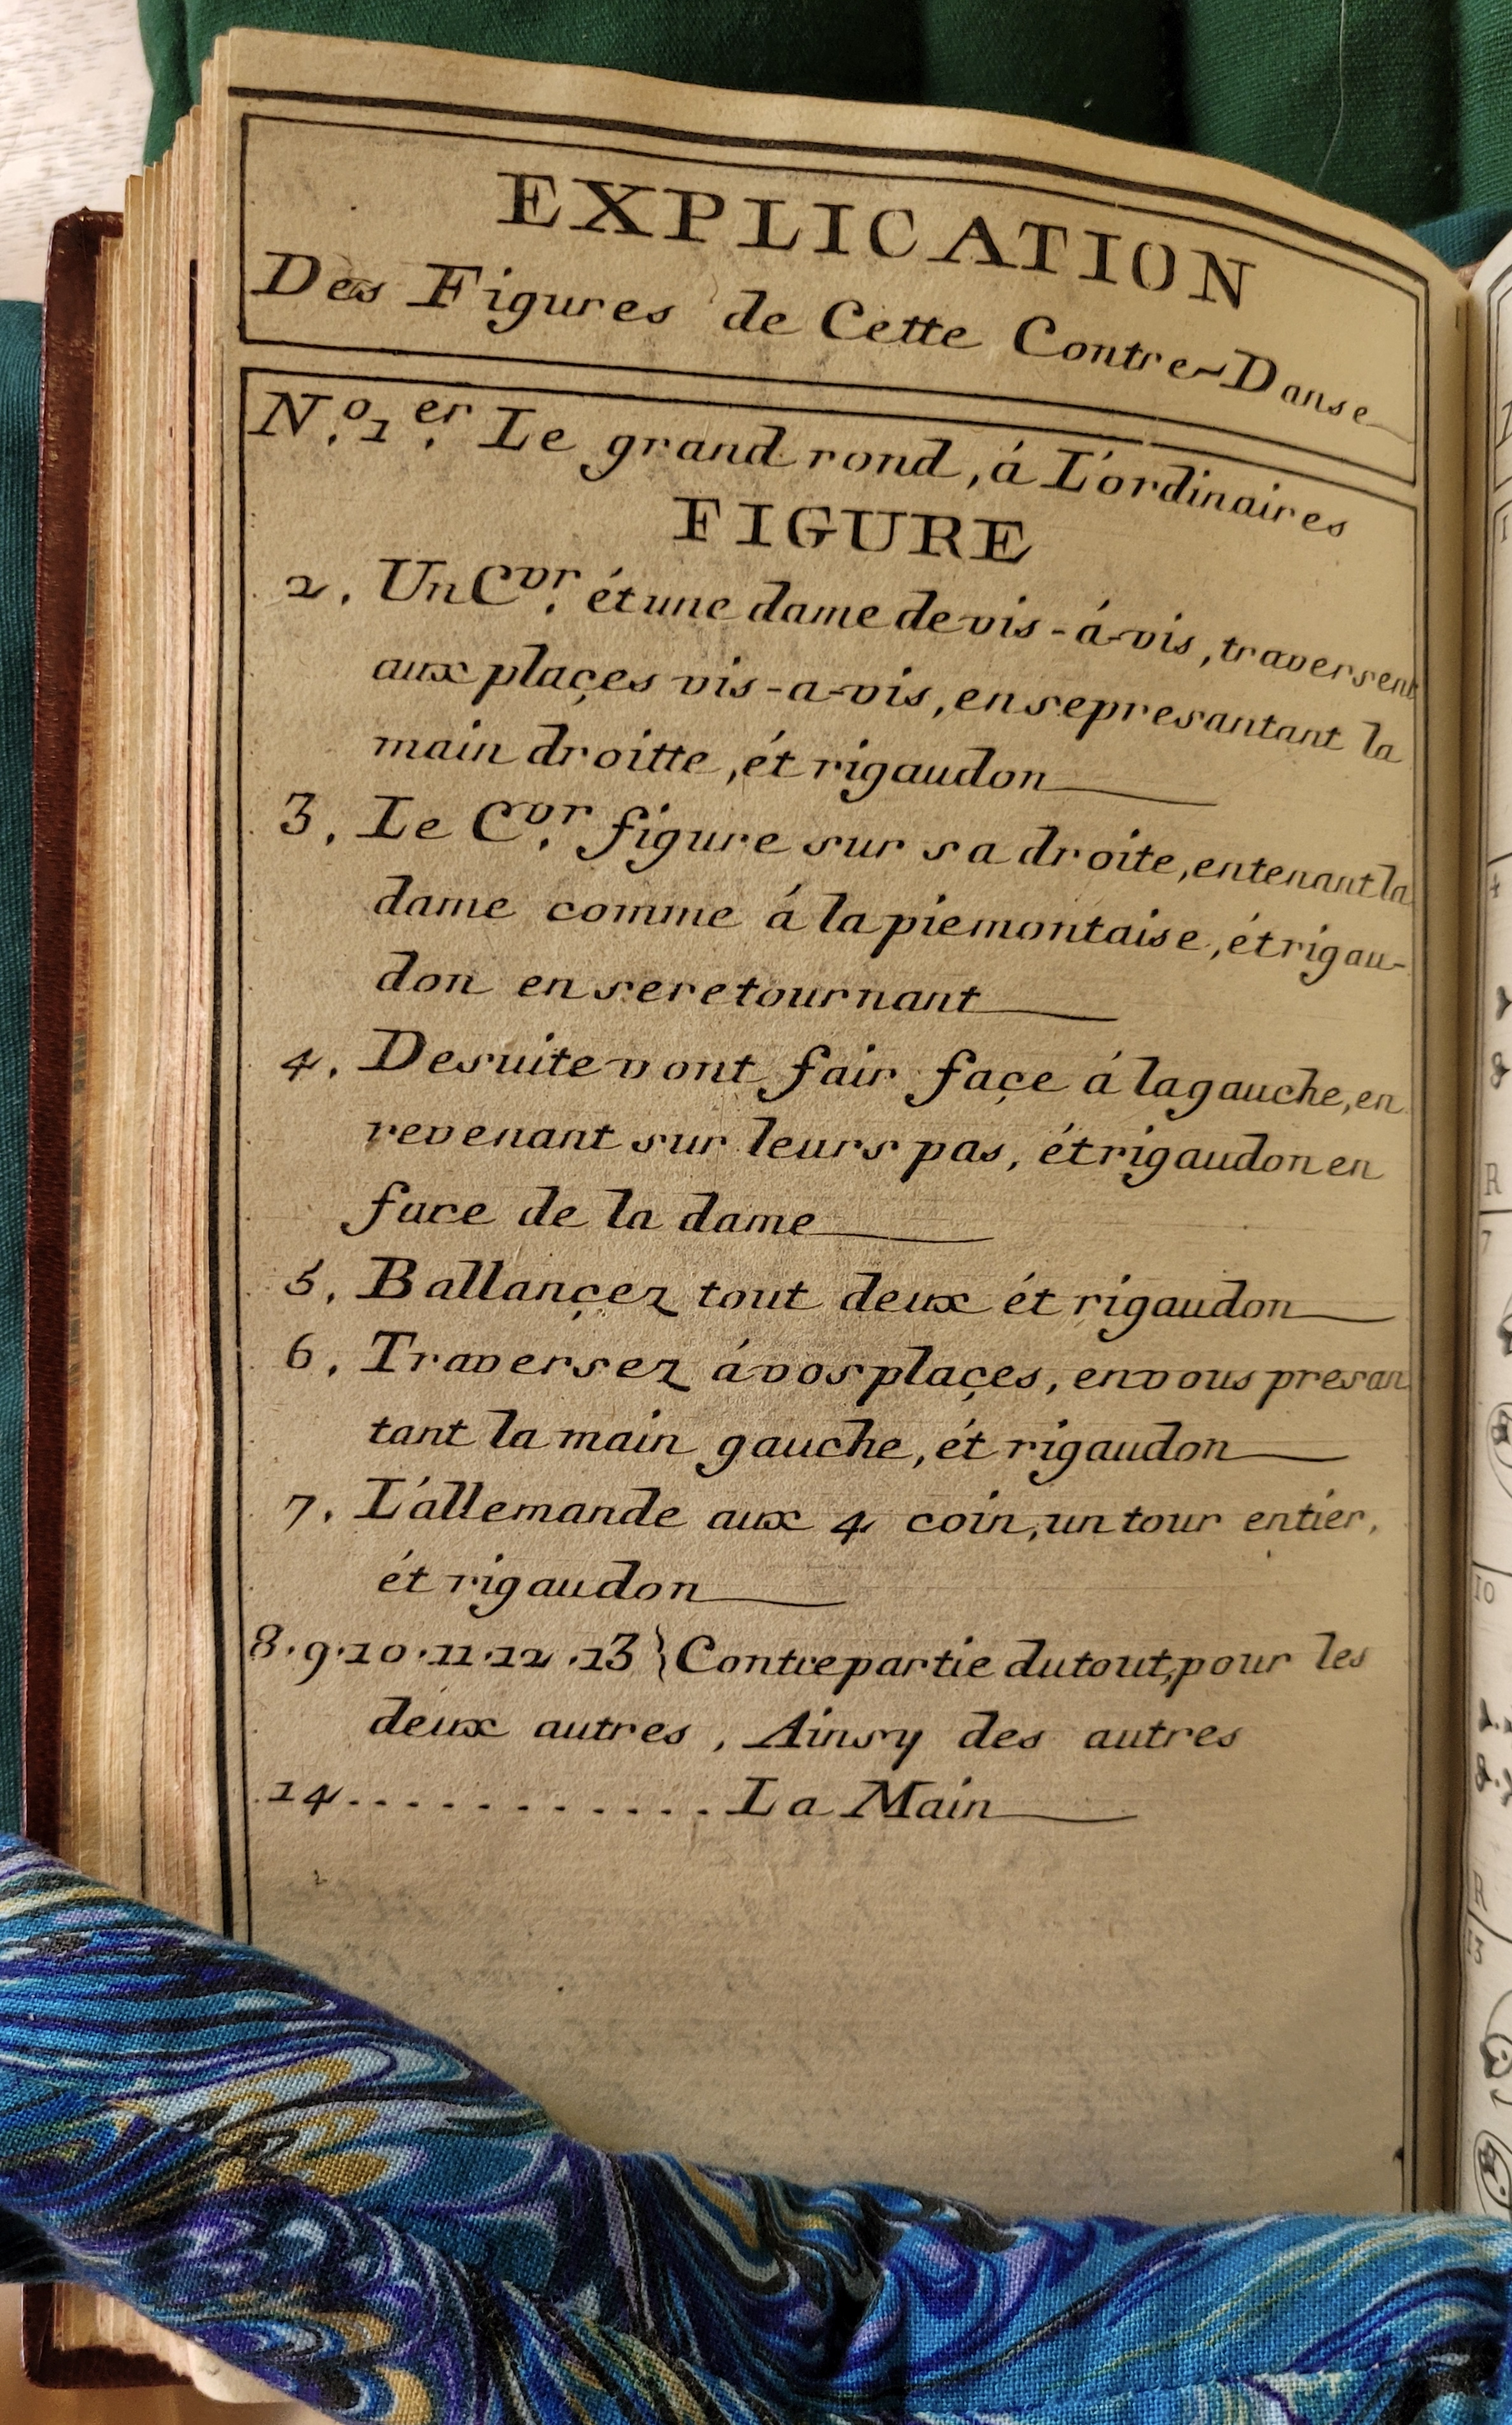 EXPLICATION
Des Figures de Cette Contre-Danse
N.º 1.er Le grand rond, á L'ordinaires
FIGURE
2. Un C.vr ét une dame de vis-á-vis, traversent
aux plaçes vis-a-vis, en se presantant la
main droitte, ét rigaudon
3. Le C.vr figure sur sa droite, en tenant la
dame comme á la piemontaise, ét rigau-
don en se retournant
4. De suite vont fair façe á la gauche, en
revenant sur leurs pas, ét rigaudon en
face de la dame
5. Ballançez tout deux ét rigaudon
6. Traversez á vos plaçes, en vous presan
tant la main gauche, ét rigaudon
7. L'allemande aux 4 coin, un tour entier,
ét rigaudon
8·9·10·11·12·13} Contrepartie du tout, pour les
deux autres, Ainsy des autres
14............La Main